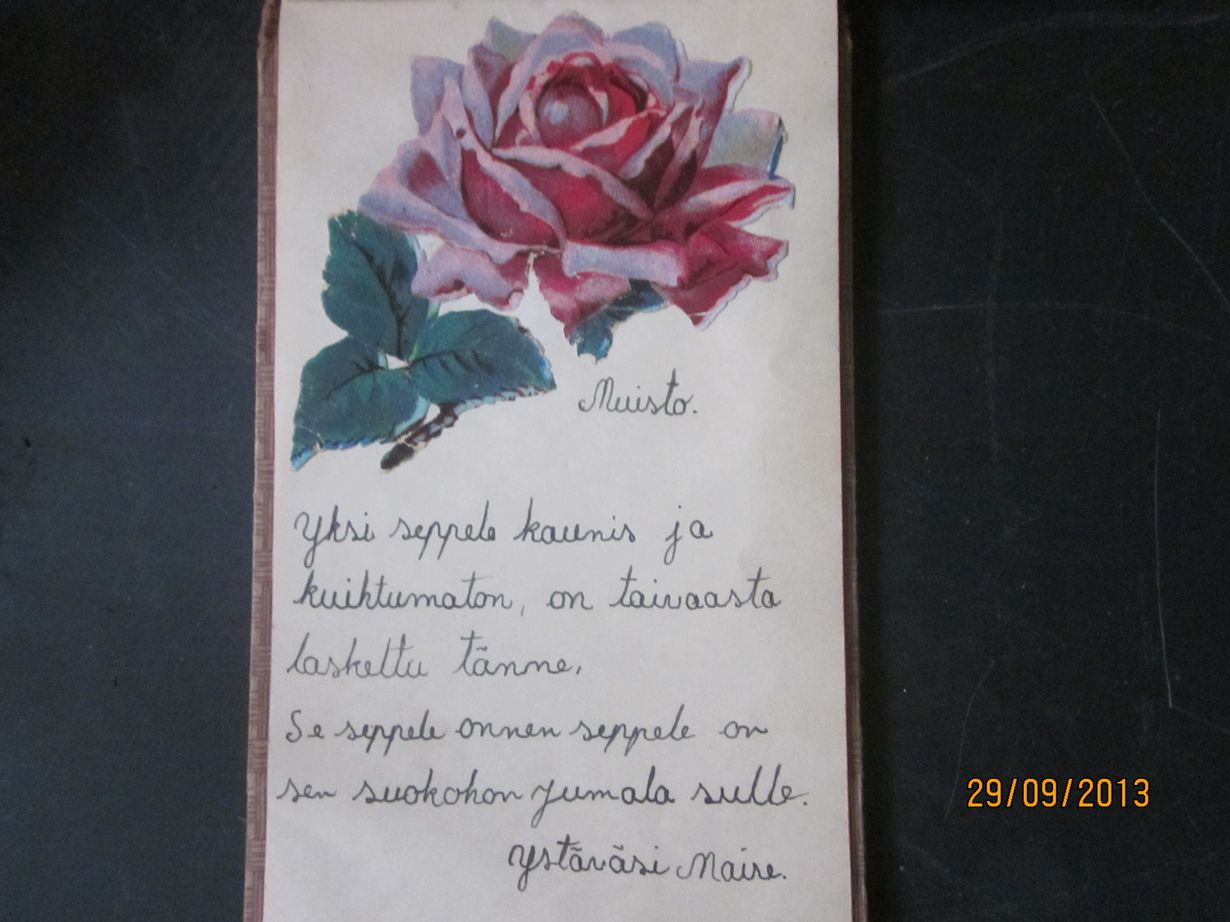 Muisto.
Yksi seppele kaunis ja
kuihtumaton, on taivaasta
laskettu tänne,
Se seppele onnen seppele on
sen suokohon Jumala sulle.
Ystäväsi Maire.
29/09/2013